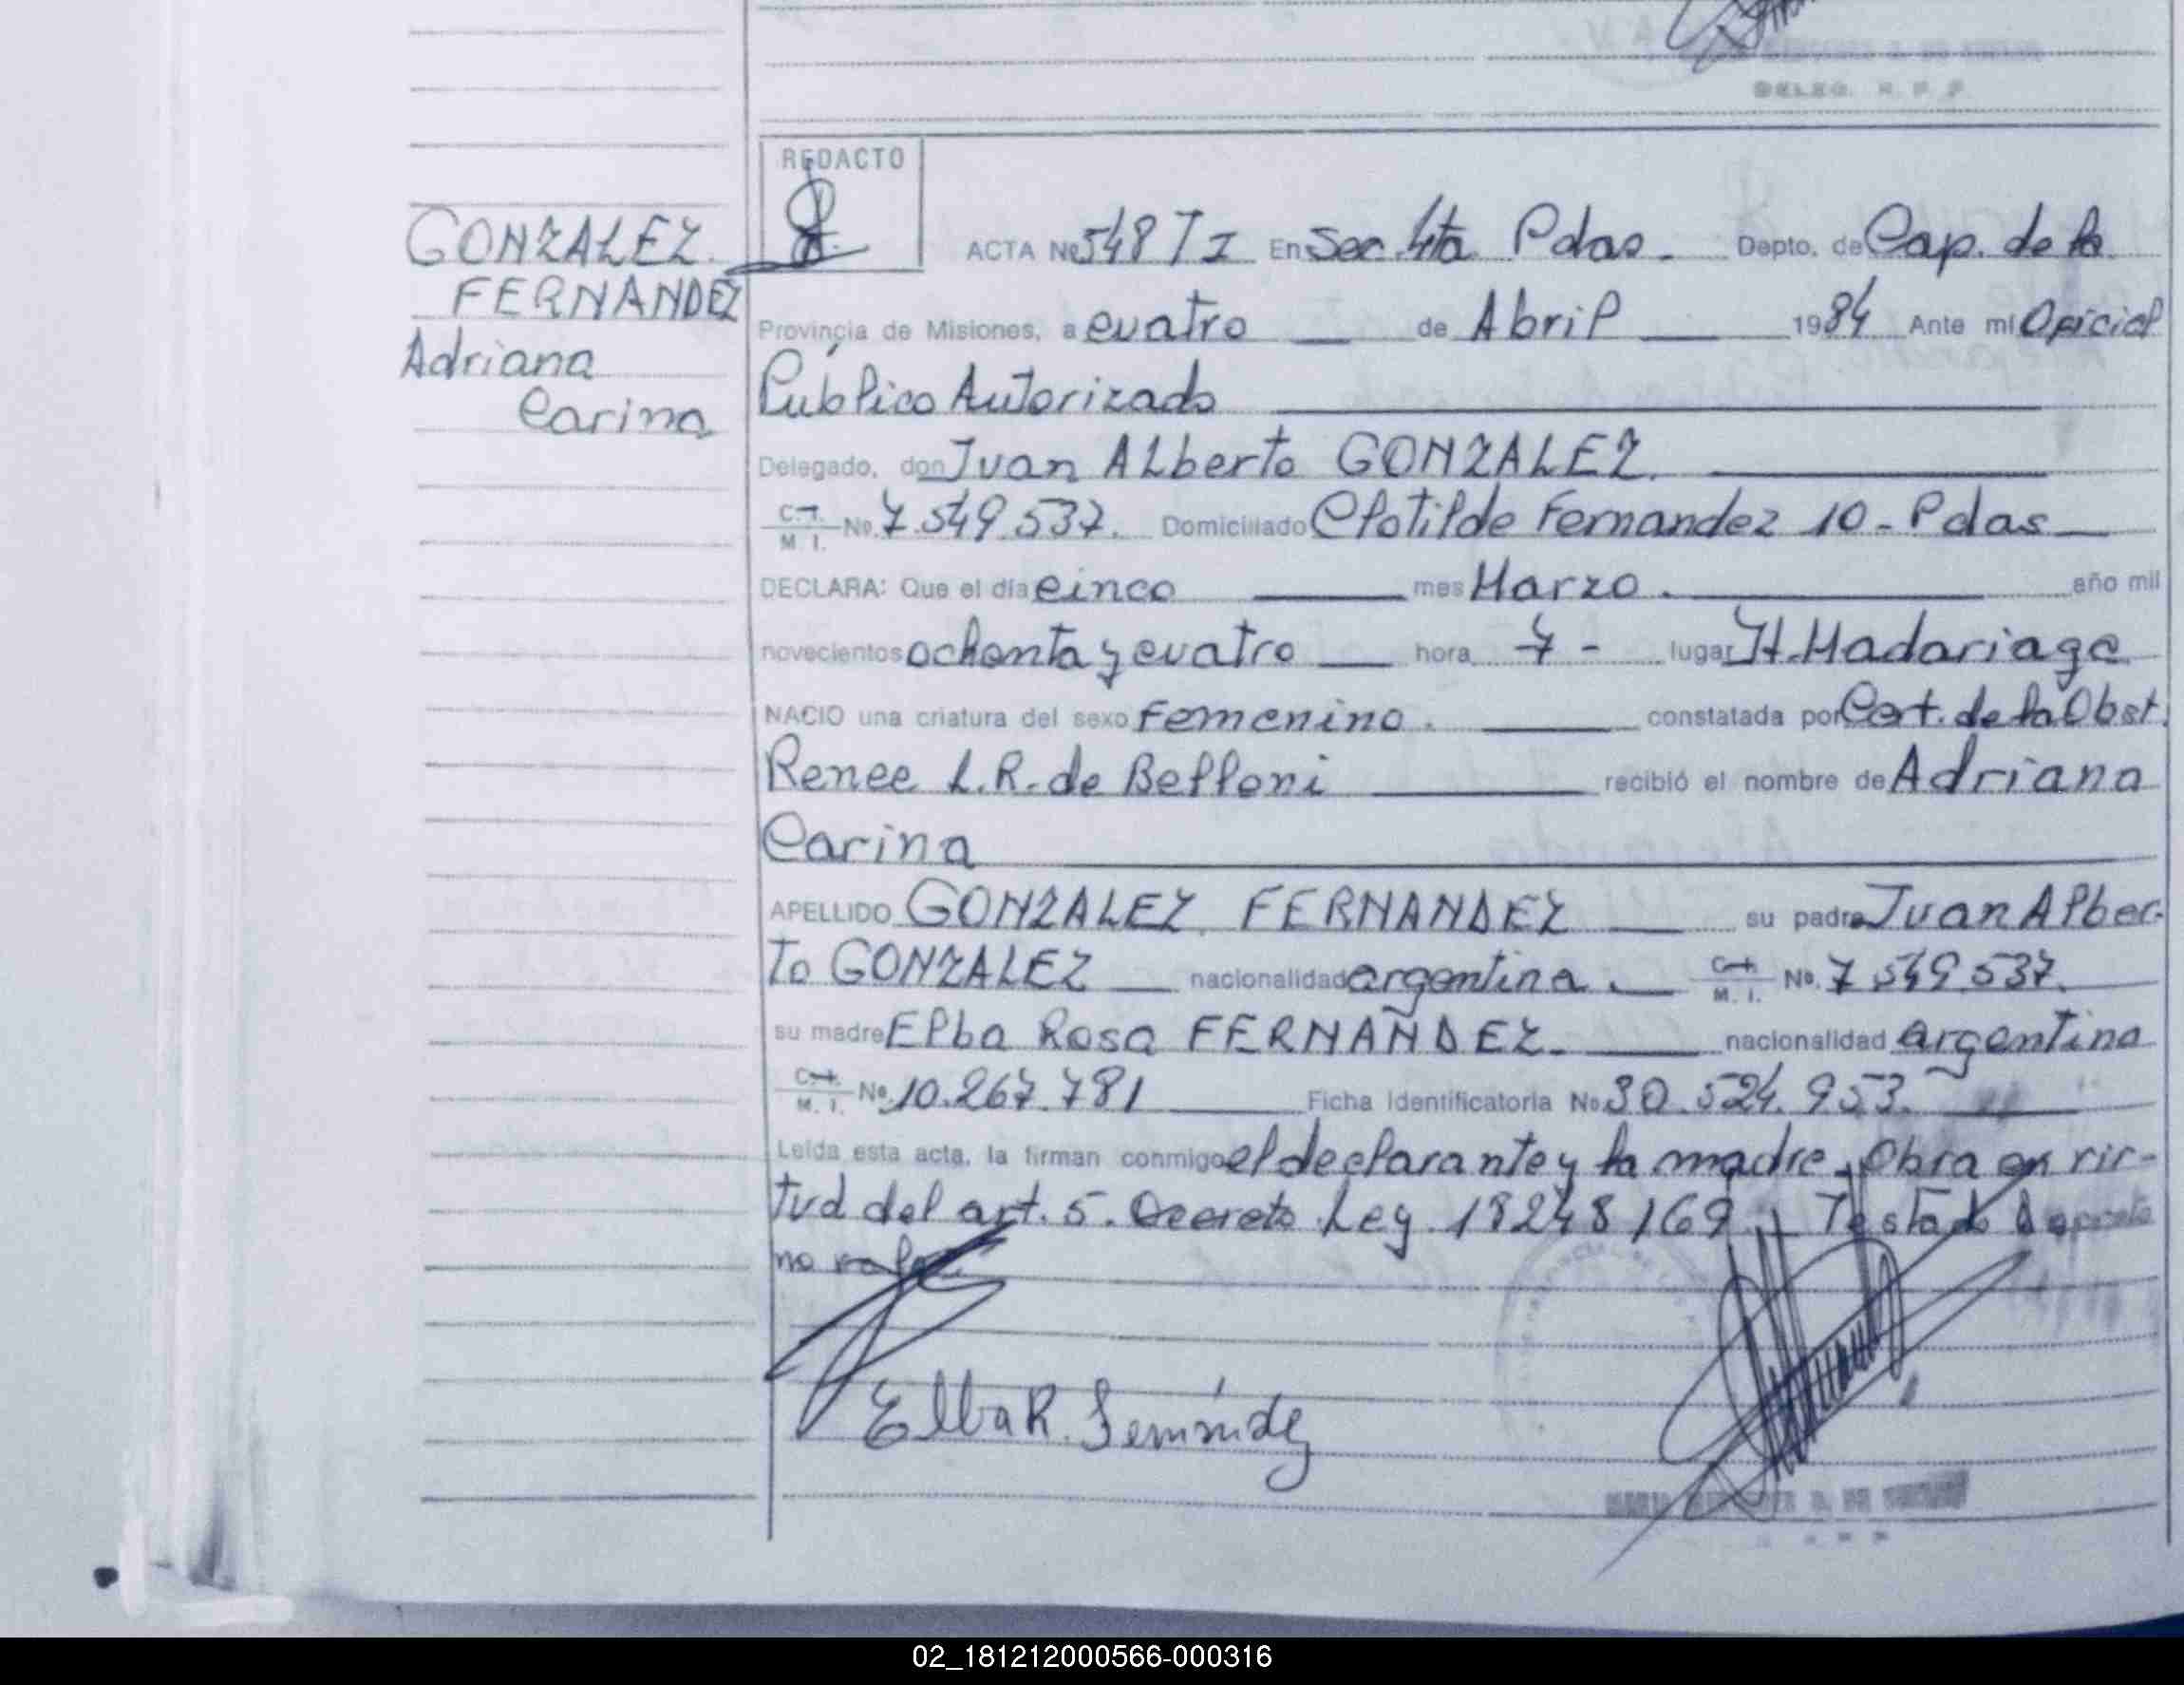 DELEG. R. P. P.
REDACTO
GONZALEZ
FERNANDEZ
Adriana
Carina
ACTA No 548 T I En Sec. 4ta Pdas. Depto. de Cap. de la
Provincia de Misiones, a cuatro de Abril 1984 Ante mi Oficial
Público Autorizado
Delegado, don Juan ALberto GONZALEZ.
C. I. M. I. No. 7.549.537. Domiciliado Clotilde Fernandez 10 - Pdas
DECLARA: Que el día cinco mes Marzo. año mil
novecientos ochenta y cuatro hora 7 - lugar H. Madariaga
NACIO una criatura del sexo Femenino. constatada por Cert. de la Obst.
Renee L. R. de Belloni recibió el nombre de Adriana
Carina
APELLIDO GONZALEZ FERNANDEZ su padre Juan Alber-
to GONZALEZ nacionalidad argentina. C. I. M. I. No. 7.549.537.
su madre Elba Rosa FERNANDEZ. nacionalidad argentina
C. I. M. I. No. 10.267.781 Ficha Identificatoria No 30.524.953.
Leída esta acta, la firman conmigo el declarante y la madre. Obra en vir-
tud del art. 5. Decreto Ley 18248/69. Testado
no vale
Elba R. Fernández
02_181212000566-000316